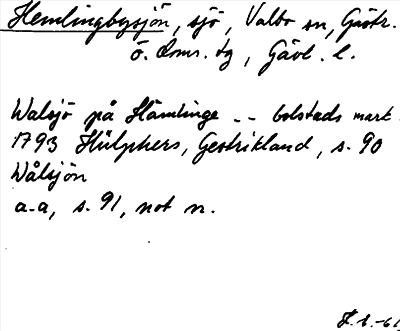 Hemlingbysjön, sjö, Valbo sn, Gästr.
ö. Doms. tg, Gävl. l.
Walsjö på Hämlinge -- bolstads mark
1793 Hülphers, Gestrikland, s. 90
Wålsjön
a.a, s. 91, not n.